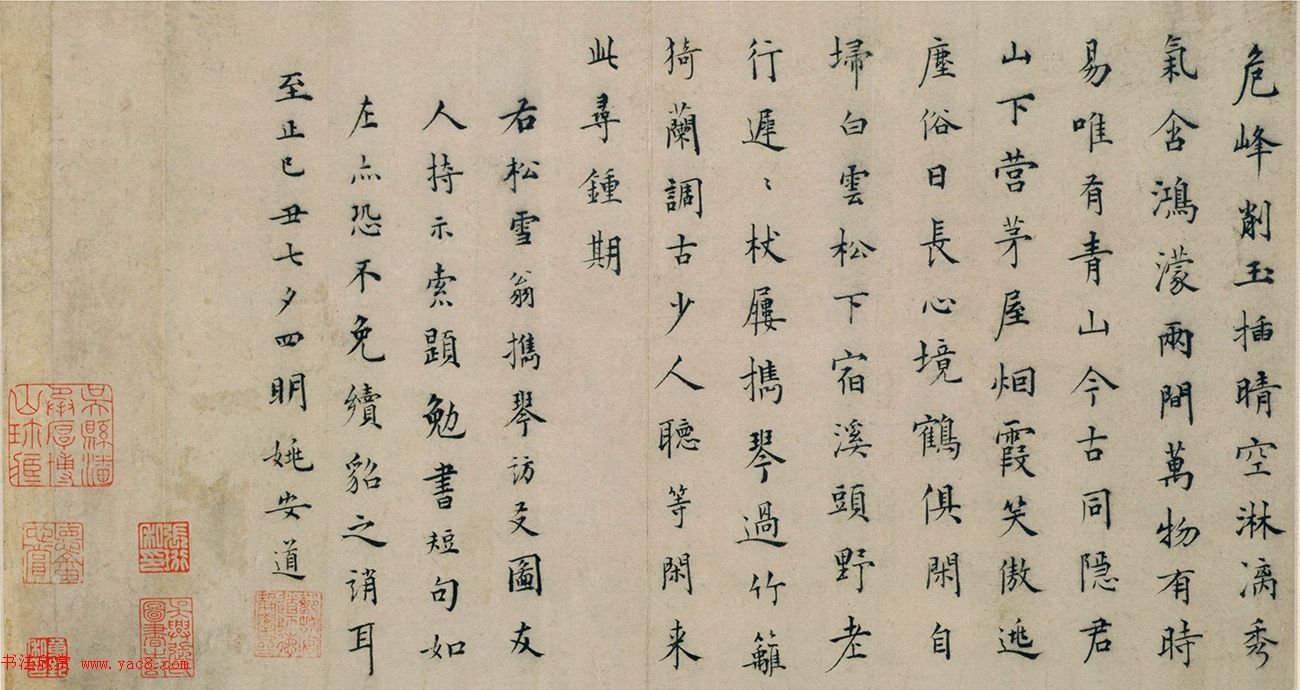 危峰削玉插晴空淋漓秀
氣含鴻濛兩間萬物有時
易唯有青山今古同隱君
山下营茅屋烟霞笑傲逃
塵俗日長心境鶴俱閑自
埽白雲松下宿溪頭野老
行遲〻杖屦携琴過竹籬
猗蘭調古少人聽等閑来
此尋鍾期
右松雪翁携琴訪友圖友
人持示索題勉書短句如
左亦恐不免續貂之誚耳
至正己丑七夕四明姚安道
书法欣赏 www.yac8.com